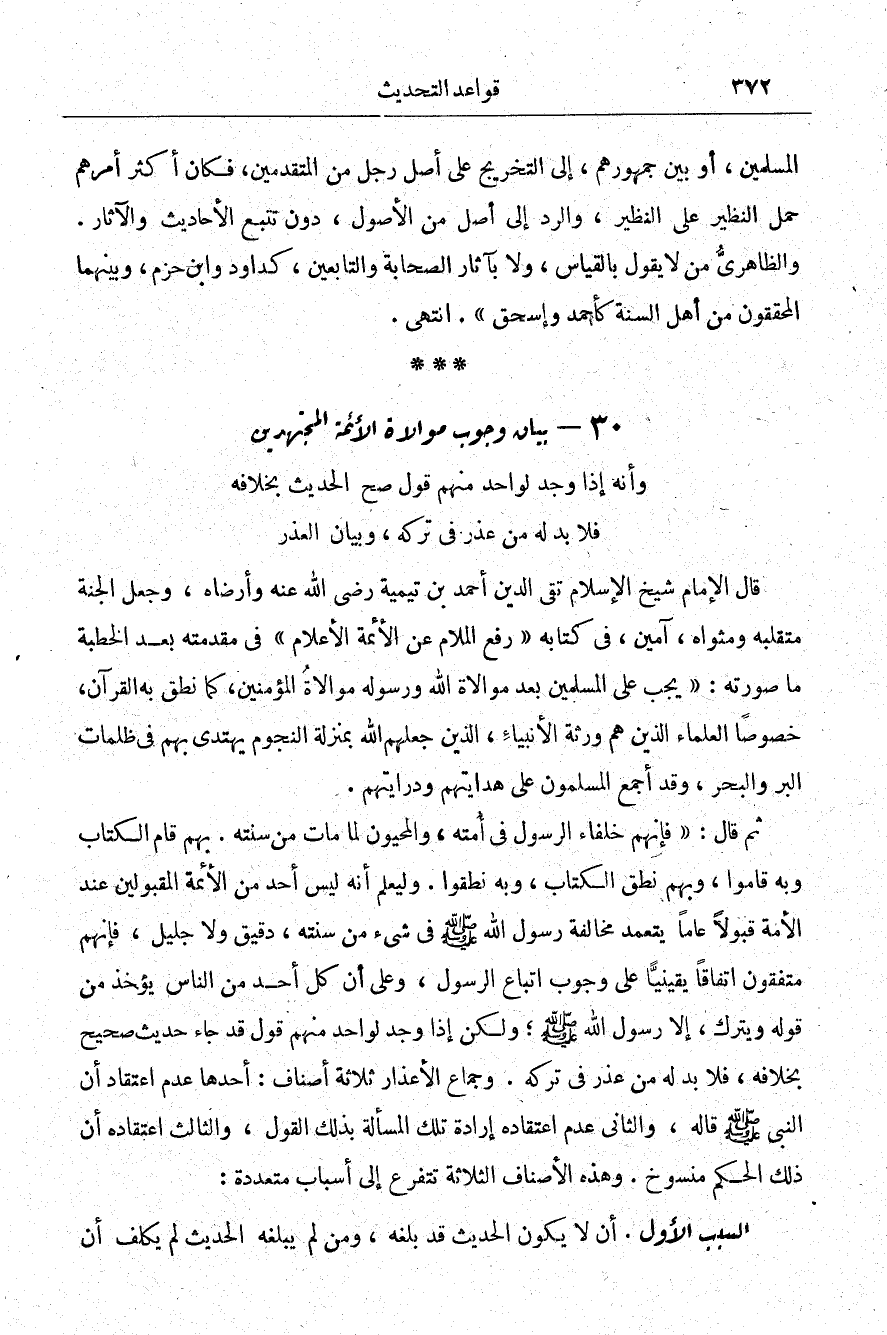 ٣٧٢
قواعد التحديث
المسلمين ، أو بين جمهورهم ، إلى التخريج على أصل رجل من المتقدمين، فكان أكثر أمرهم
حمل النظير على النظير ، والرد إلى أصل من الأصول ، دون تتبع الأحاديث والآثار .
والظاهرىُّ من لا يقول بالقياس ، ولا بآثار الصحابة والتابعين ، كداود وابن حزم ، وبينهما
المحققون من أهل السنة كأحمد وإسحق » . انتهى .
* * *
٣٠ — بيان وجوب موالاة الأئمة المجتهدين
وأنه إذا وجد لواحد منهم قول صح الحديث بخلافه
فلا بد له من عذر فى تركه ، وبيان العذر
قال الإمام شيخ الإسلام تقى الدين أحمد بن تيمية رضى الله عنه وأرضاه ، وجعل الجنة
متقلبه ومثواه ، آمين ، فى كتابه « رفع الملام عن الأئمة الأعلام » فى مقدمته بعد الخطبة
ما صورته : « يجب على المسلمين بعد موالاة الله ورسوله موالاةُ المؤمنين، كما نطق به القرآن،
خصوصًا العلماء الذين هم ورثة الأنبياءِ ، الذين جعلهم الله بمنزلة النجوم يهتدى بهم فى ظلمات
البر والبحر ، وقد أجمع المسلمون على هدايتهم ودرايتهم .
ثم قال : « فإنهم خلفاء الرسول فى أُمته ، والمحيون لما مات من سنته . بهم قام الكتاب
وبه قاموا ، وبهم نطق الكتاب ، وبه نطقوا . وليعلم أنه ليس أحد من الأئمة المقبولين عند
الأمة قبولاً عاماً يتعمد مخالفة رسول الله ﷺ فى شىء من سنته ، دقيق ولا جليل ، فإنهم
متفقون اتفاقاً يقينيًّا على وجوب اتباع الرسول ، وعلى أن كل أحد من الناس يؤخذ من
قوله ويترك ، إلا رسول الله ﷺ ؛ ولكن إذا وجد لواحد منهم قول قد جاء حديث صحيح
بخلافه ، فلا بد له من عذر فى تركه . وجماع الأعذار ثلاثة أصناف : أحدها عدم اعتقاد أن
النبى ﷺ قاله ، والثانى عدم اعتقاده إرادة تلك المسألة بذلك القول ، والثالث اعتقاده أن
ذلك الحكم منسوخ . وهذه الأصناف الثلاثة تتفرع إلى أسباب متعددة :
السبب الأول . أن لا يكون الحديث قد بلغه ، ومن لم يبلغه الحديث لم يكلف أن